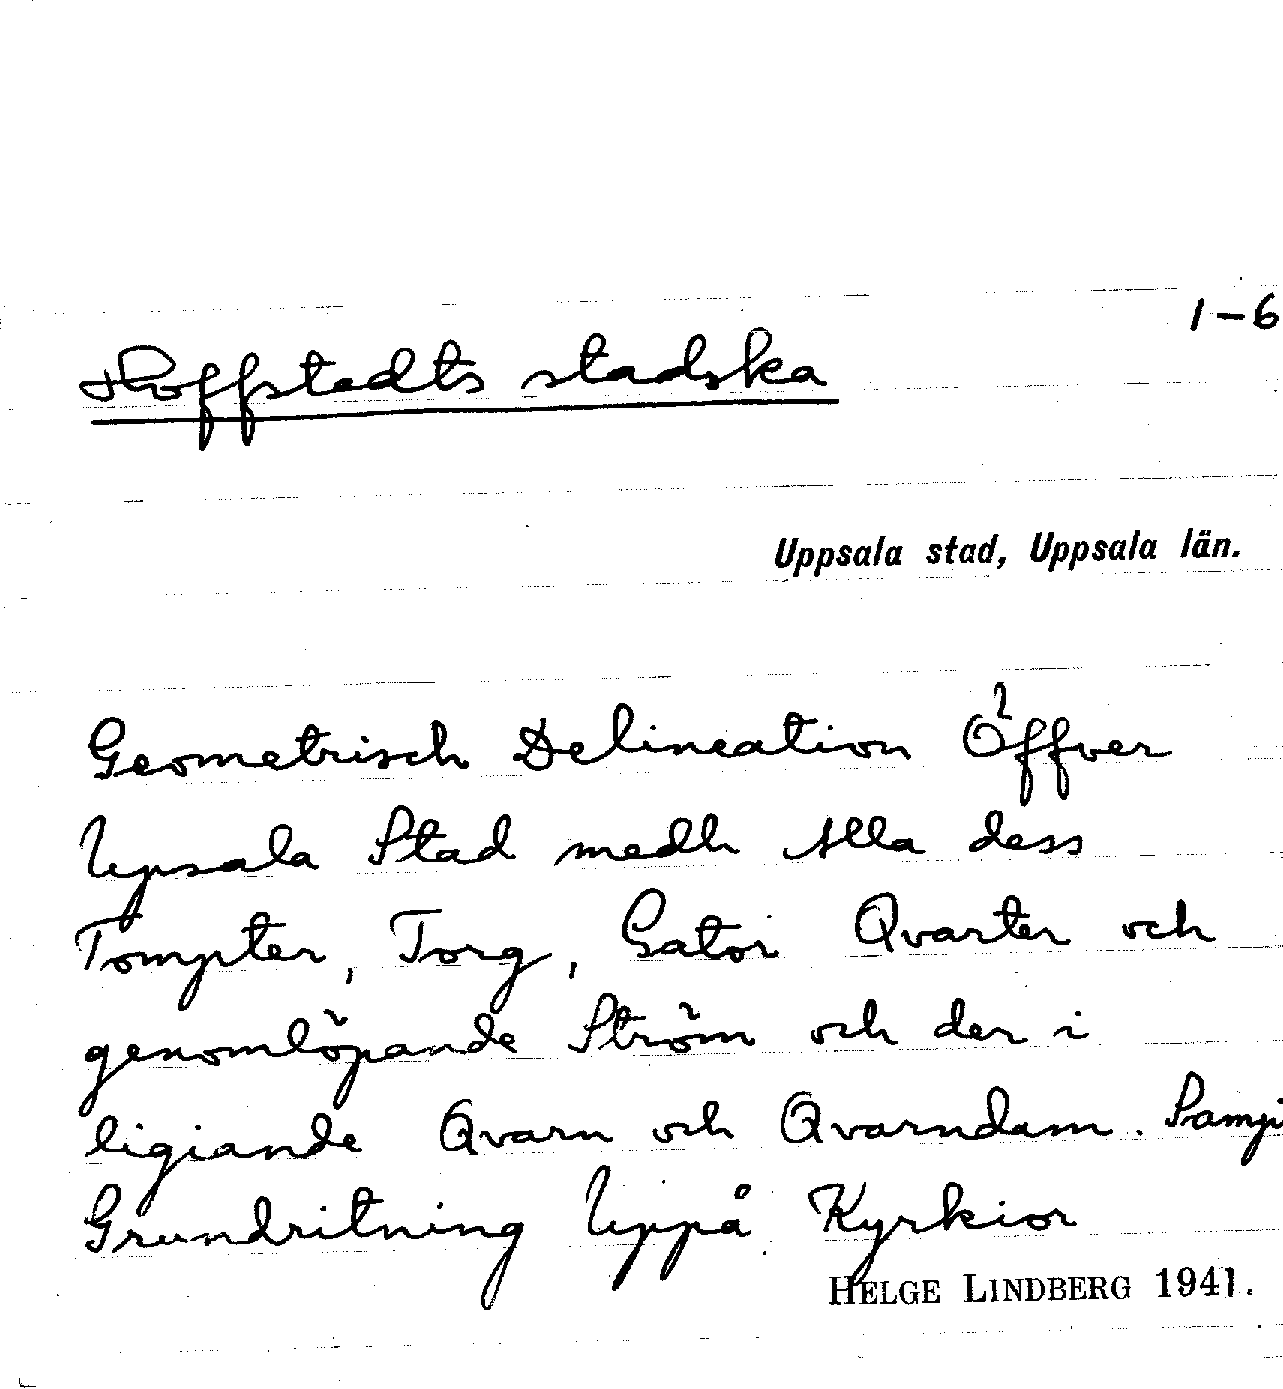 1-6
Hoffstedts stadska
Uppsala stad, Uppsala län.
Geometrisch Delineation Öffver
Upsala Stad medh Alla dess
Tompter, Torg, Gator Qvarter och
genomlöpande Ström och der i
ligiande Qvarn och Qvarndam. Sampt
Grundritning Uppå Kyrkior
HELGE LINDBERG 1941.